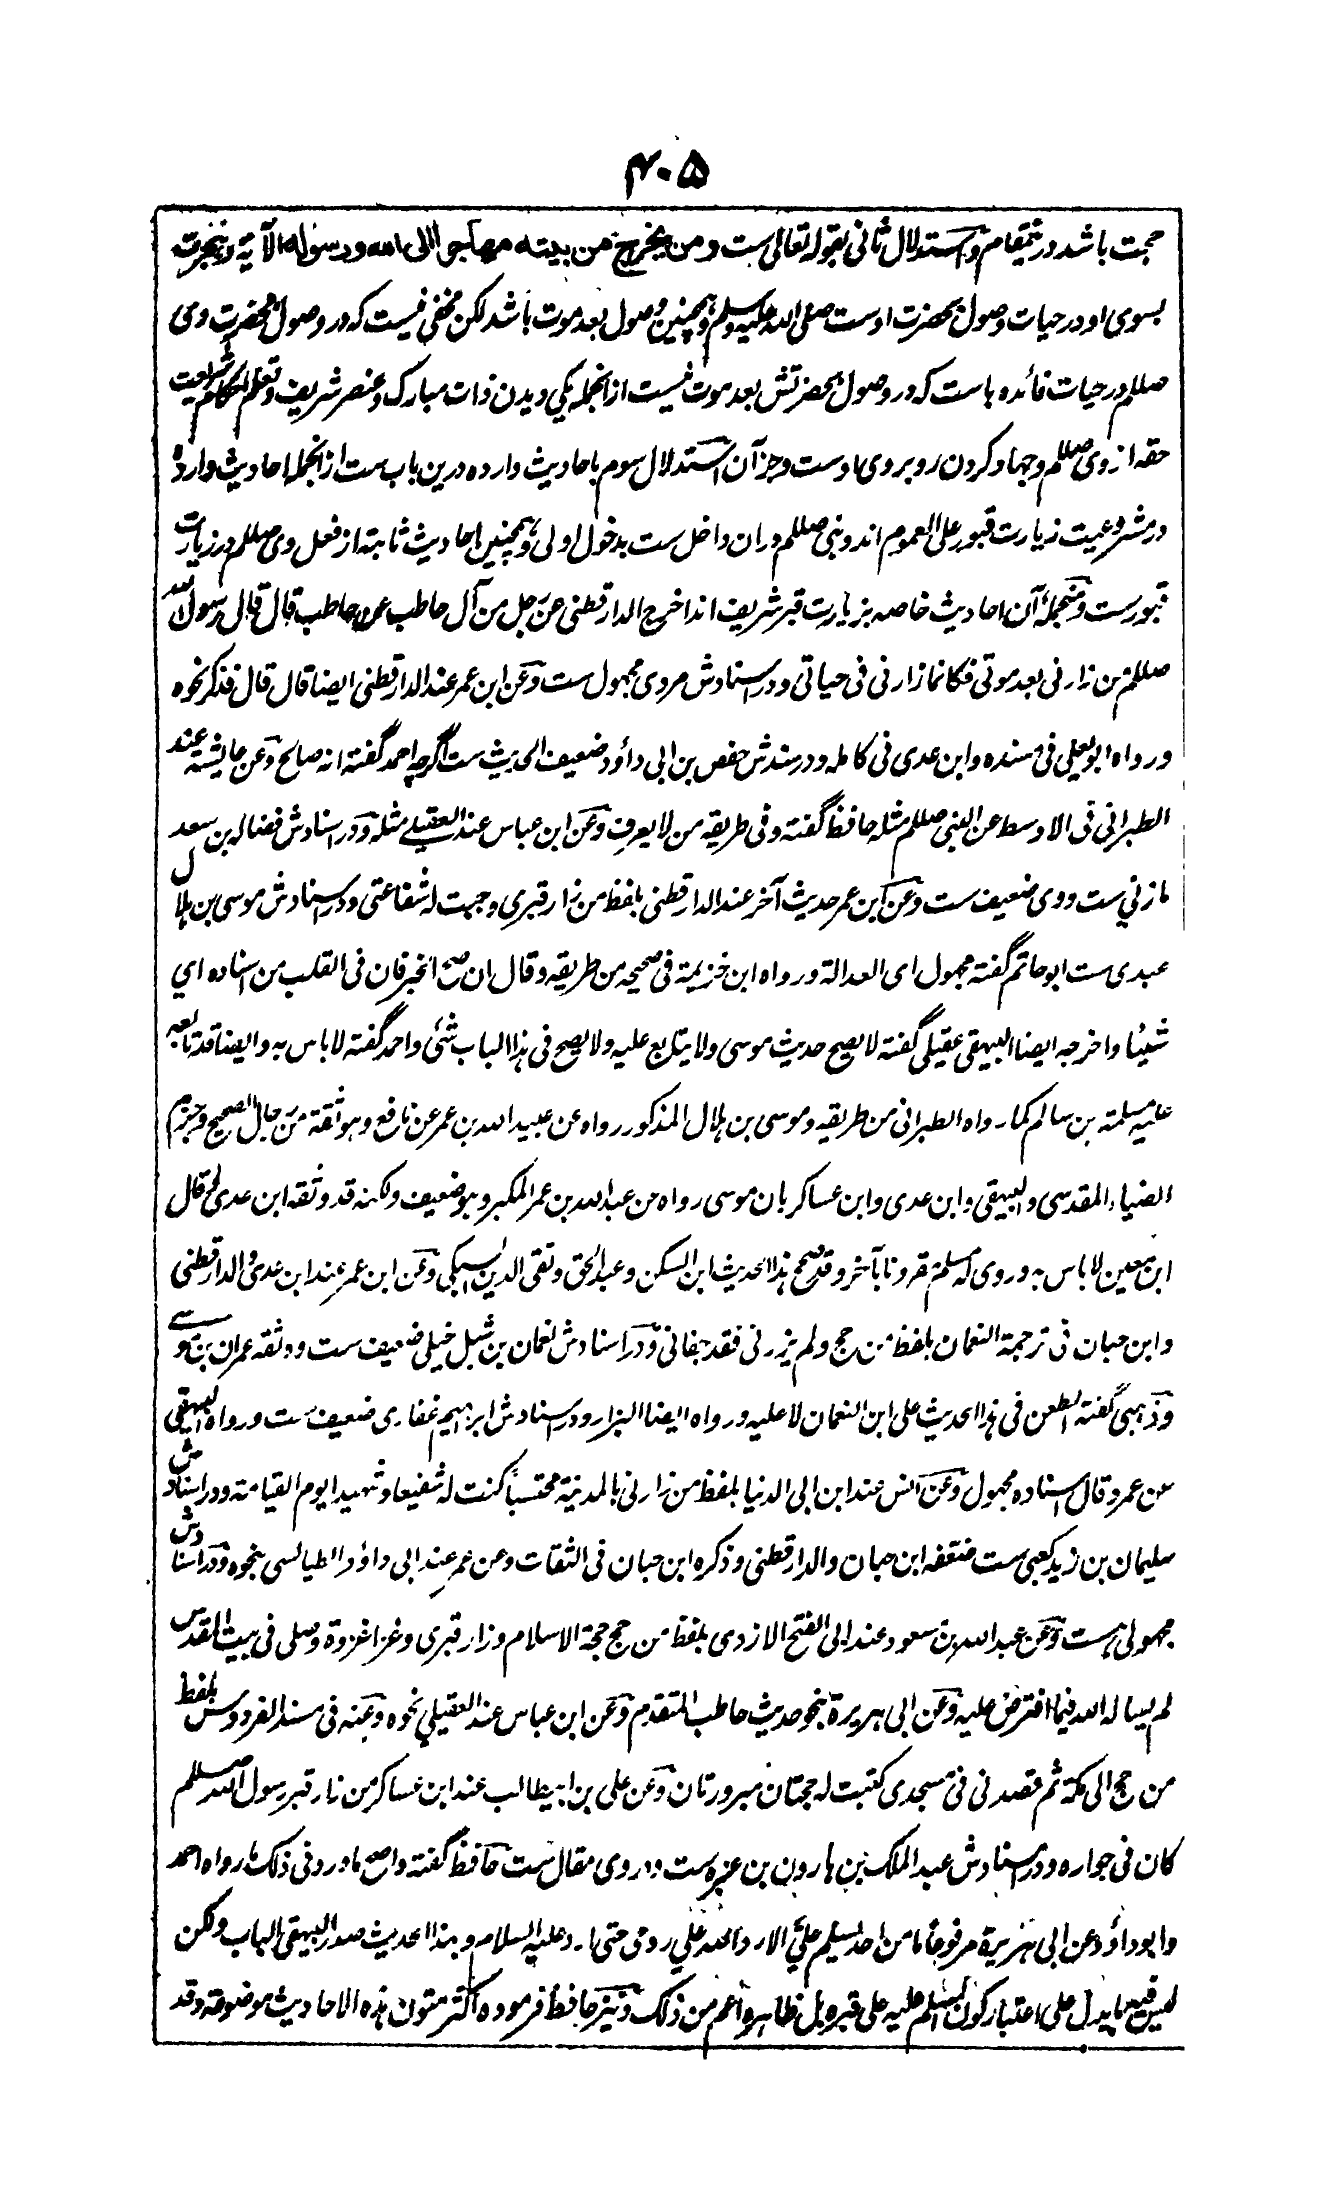 ۴۰۵
حجت باشد درینمقام و استدلال ثانی بقوله تعالی ست و من یخرج من بیته مهاجرا الی الله و رسوله الآیة و هجرت
بسوی او در حیات وصول بحضرت اوست صلی الله علیه وسلم و همچنین وصول بعد موت باشد لکن مخفی نیست که در وصول بحضرت وی
صللم در حیات فائده هاست که در وصول بحضرتش بعد موت نیست ازانجمله یکی دیدن ذات مبارک و عنصر شریف و تعلم احکام شریعت
حقه از وی صللم و جهاد کردن روبروی اوست و جز آن استدلال سوم باحادیث وارده درین باب ست ازانجمله احادیث وارده
در مشروعیت زیارت قبور علی العموم اند و نبی صللم دران داخل ست بدخول اولی و همچنین احادیث ثابته از فعل وی صللم در زیارت
قبورست و منجمله آن احادیث خاصه بزیارت قبر شریف اند اخرج الدارقطنی عن رجل من آل حاطب عن حاطب قال قال رسول الله
صللم من زارنی بعد موتی فکانما زارنی فی حیاتی و در اسنادش مردی مجهول ست و عن ابن عمر عند الدارقطنی ایضا قال قال فذکر نحوه
و رواه ابو یعلی فی مسنده و ابن عدی فی کامله و در سندش حفص بن ابی داؤد ضعیف الحدیث ست اگرچه احمد گفته انه صالح و عن عایشة عند
الطبرانی فی الاوسط عن النبی صللم مثله حافظ گفته و فی طریقه من لا یعرف و عن ابن عباس عند العقیلے مثله و در اسنادش فضاله بن سعد
مازنی ست و وی ضعیف ست و عن ابن عمر حدیث آخر عند الدارقطنی بلفظ من زار قبری وجبت له شفاعتی و در اسنادش موسی بن هلال
عبدی ست ابو حاتم گفته مجهول ای العدالة و رواه ابن خزیمة فی صحیحه من طریقه و قال ان صح الخبر فان فی القلب من اسناده ای
شیئا و اخرجه ایضا البیهقی عقیلی گفته لا یصح حدیث موسی و لا یتابع علیه و لا یصح فی هذا الباب شئ و احمد گفته لا باس به و ایضا قد تابعه
علیه مسلمة بن سالم کما رواه الطبرانی من طریقه و موسی بن هلال المذکور رواه عن عبید الله بن عمر عن نافع و هو ثقة من رجال الصحیح و جزم
الضیاء المقدسی و البیهقی و ابن عدی و ابن عساکر بان موسی رواه عن عبد الله بن عمر المکبر و هو ضعیف و لکنه قد وثقه ابن عدی قال
ابن معین لا باس به و روی له مسلم مقرونا بآخر و قد صحح هذا الحدیث ابن السکن و عبد الحق و تقی الدین السبکی و عن ابن عمر عند ابن عدی و الدارقطنی
و ابن حبان فی ترجمة النعمان بلفظ من حج و لم یزرنی فقد جفانی و در اسنادش نعمان بن شبل خیلی ضعیف ست و وثقه عمران بن موسے
و ذهبی گفته الطعن فی هذا الحدیث علی ابن النعمان لا علیه و رواه ایضا البزار و در اسنادش ابراهیم غفاری ضعیف ست و رواه البیهقی
عن عمر و قال اسناده مجهول و عن انس عند ابن ابی الدنیا بلفظ من زارنی بالمدینة محتسباً کنت له شفیعا و شهیدا یوم القیامة و در اسنادش
سلیمان بن زید کعبی ست ضعفه ابن حبان و الدارقطنی و ذکره ابن حبان فی الثقات و عن عمر عند ابی داؤد الطیالسی بنحوه و در اسنادش
مجهولی ست و عن عبد الله بن مسعود عند ابی الفتح الازدی بلفظ من حج حجة الاسلام و زار قبری و غزا غزوة و صلی فی بیت المقدس
لم یساله الله فیما افترض علیه و عن ابی هریرة بنحو حدیث حاطب المتقدم و عن ابن عباس عند العقیلی نحوه و عنه فی مسند الفردوس بلفظ
من حج الی مکة ثم قصدنی فی مسجدی کتبت له حجتان مبرورتان و عن علی بن ابیطالب عند ابن عساکر من زار قبر رسول الله صللم
کان فی جواره و در اسنادش عبد الملک بن هارون بن عنبره ست و در وی مقال ست حافظ گفته و اصح ما ورد فی ذلک ما رواه احمد
و ابو داؤد عن ابی هریرة مرفوعا ما من احد یسلم علیّ الا رد الله علی روحی حتی ارد علیه السلام و بهذا الحدیث صدر البیهقی الباب و لکن
لیس فیه ما یدل علی اعتبار کون المسلم علیه علی قبره بل ظاهره اعم من ذلک و نیز حافظ فرموده اکثر متون هذه الاحادیث موضوعة و قد